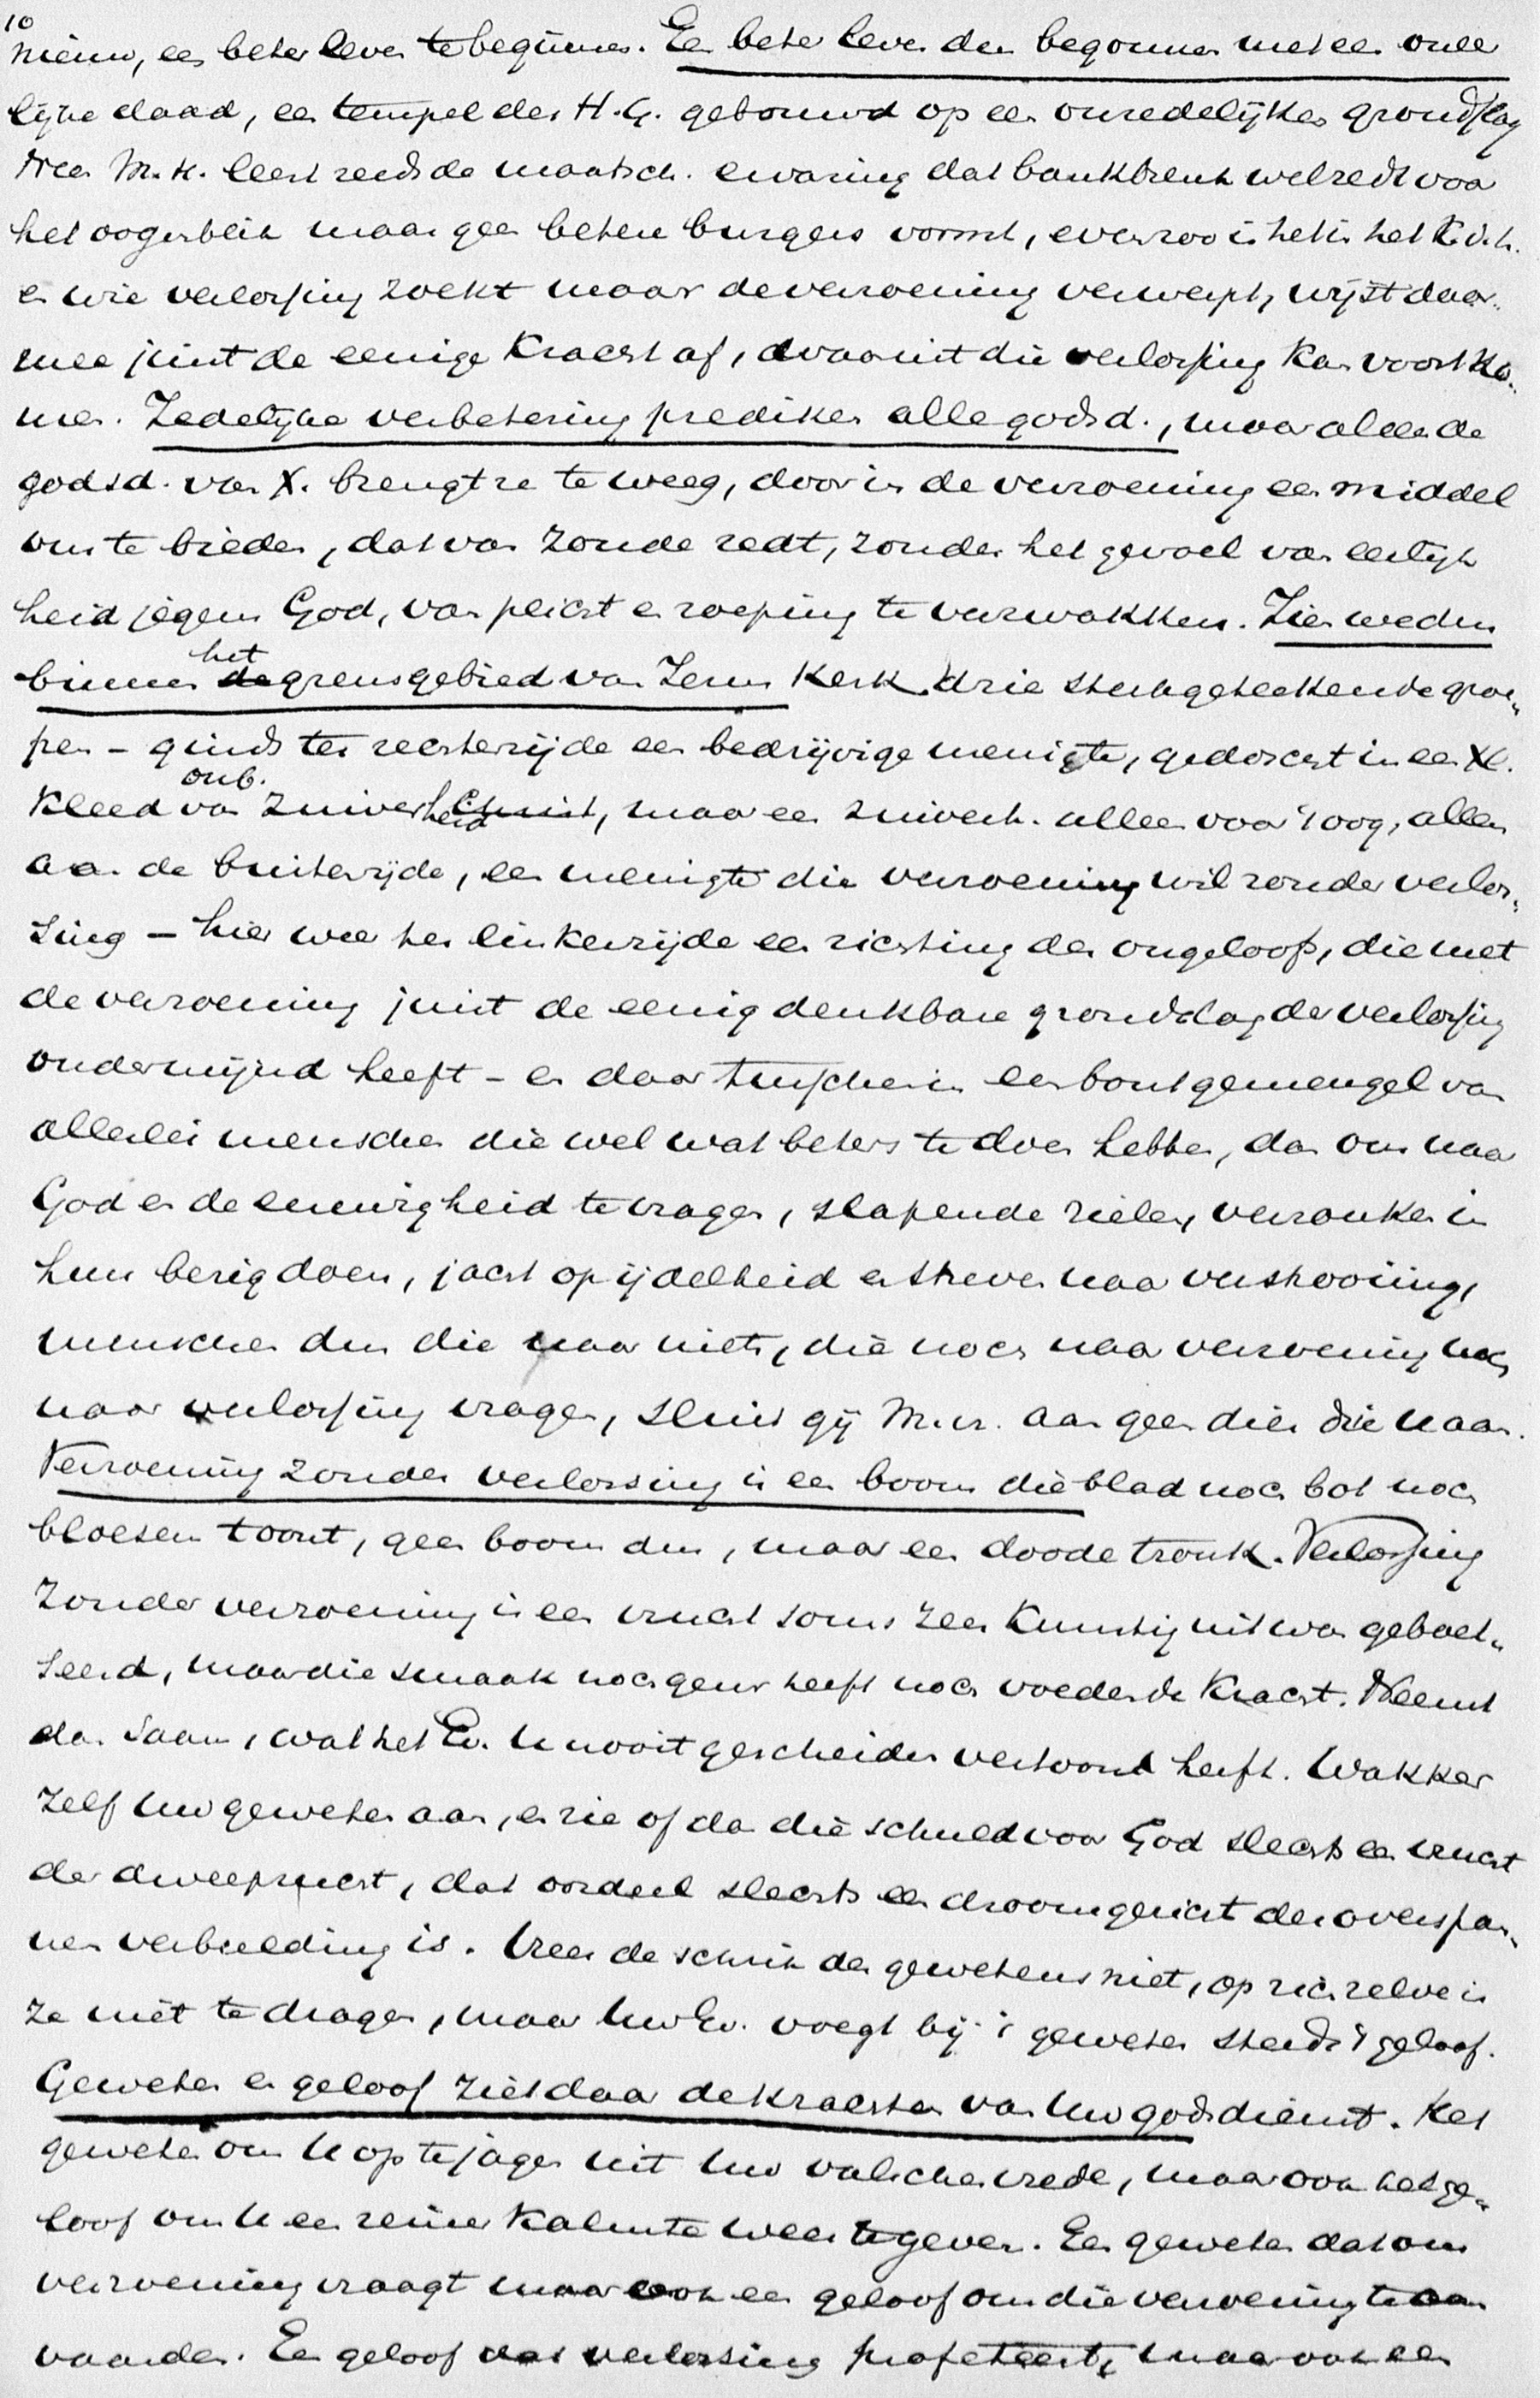 10
nieuw, een beter leven te beginnen. Een beter leven dus begonnen met een oneer
lijke daad, een tempel des H.G. gebouwd op een onredelijken grondslag
Neen M.H. leert reeds de maatsch. ervaring dat bankbreuk wel redt voor
het oogenblik maar geen betere burgers vormt, evenzoo is het in het K.d.h.
en wie verlossing zoekt maar de verzoening verwerpt, wijst daar-
mee juist de eenige kracht af, waaruit die verlossing kan voortko-
men. Zedelijke verbetering prediken alle godsd., maar alleen de
godsd. van X. brengt ze te weeg, door in de verzoening een middel
ons te bieden, dat van zonde redt, zonder het gevoel van eerlijk
heid jegens God, van plicht en roeping te verzwakken. Zier weder
binnen het de grensgebied van Jezus Kerk drie sterkgeteekende groe-
pen - ginds ter rechterzijde een bedrijvige menigte, gedoscht in een Xl.
kleed van onb. zuiverheid Christ, maar een zuiverh. alleen voor 't oog, alleen
aan de buitenzijde, een menigte die verzoening wil zonder verlos-
sing - hier weer ter linkerzijde een richting des ongeloofs, die met
de verzoening juist de eenig denkbare grondslag der verlossing
ondermijnd heeft - en daar tusschen in een bont gemengel van
allerlei menschen die wel wat beters te doen hebben, dan om naar
God en de eeuwigheid te vragen, slapende zielen, verzonken in
hun bezig doen, jacht op ijdelheid en streven naar verstrooiing,
menschen dus die naar niets, die noch naar verzoening noch
naar verlossing vragen, sluit gij M.vr. aan geen dier drie u aan.
Verzoening zonder verlossing is een boom die blad noch bot noch
bloesem toont, geen boom dus, maar een doode tronk. Verlossing
zonder verzoening is een vrucht soms zeer kunstig uit was geboet-
seerd, maar die smaak noch geur heeft noch voedende kracht. Neemt
dan saam, wat het Ev. U nooit gescheiden vertoond heeft. Wakker
zelf Uw geweten aan, en zie of dan die schuld voor God slechts een vrucht
der dweepzucht, dat oordeel slechts een droomgezicht der overspan-
nen verbeelding is. Vrees de schrik des gewetens niet, op zich zelve is
ze niet te dragen, maar Uw Ev. voegt bij 't geweten steeds 't geloof.
Geweten en geloof ziet daar de krachten van Uw godsdienst. Het
geweten om U op te jagen uit Uw valschen vrede, maar ook het ge-
loof om U een reine kalmte weer te geven. Een geweten dat om
verzoening vraagt maar ook een geloof om die verzoening te aan
vaarden. Een geloof dat verlossing profeteert, maar ook een